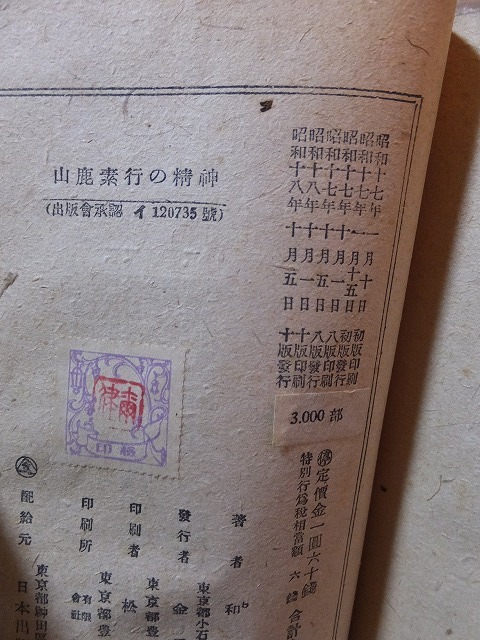 昭和十七年一月十日初版印刷
昭和十七年一月十五日初版發行
昭和十七年十月一日八版印刷
昭和十七年十月五日八版發行
昭和十八年十月一日十版印刷
昭和十八年十月五日十版發行
3.000部
停定價金一圓六十錢
特別行爲税相當額 六錢 合計
山鹿素行の精神
(出版會承認 イ 120735號)
著者 和
發行者 東京都小石
金
印刷者 東京都豊
松
印刷所 東京都豊
有限會社
配給元 東京都神田區
日本出